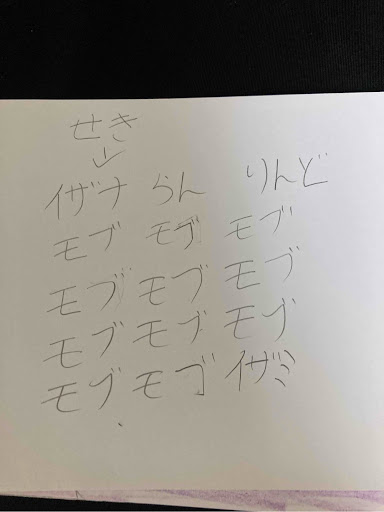 せき
↓
イザナ らん りんど
モブ モブ モブ
モブ モブ モブ
モブ モブ モブ
モブ モブ イザミ